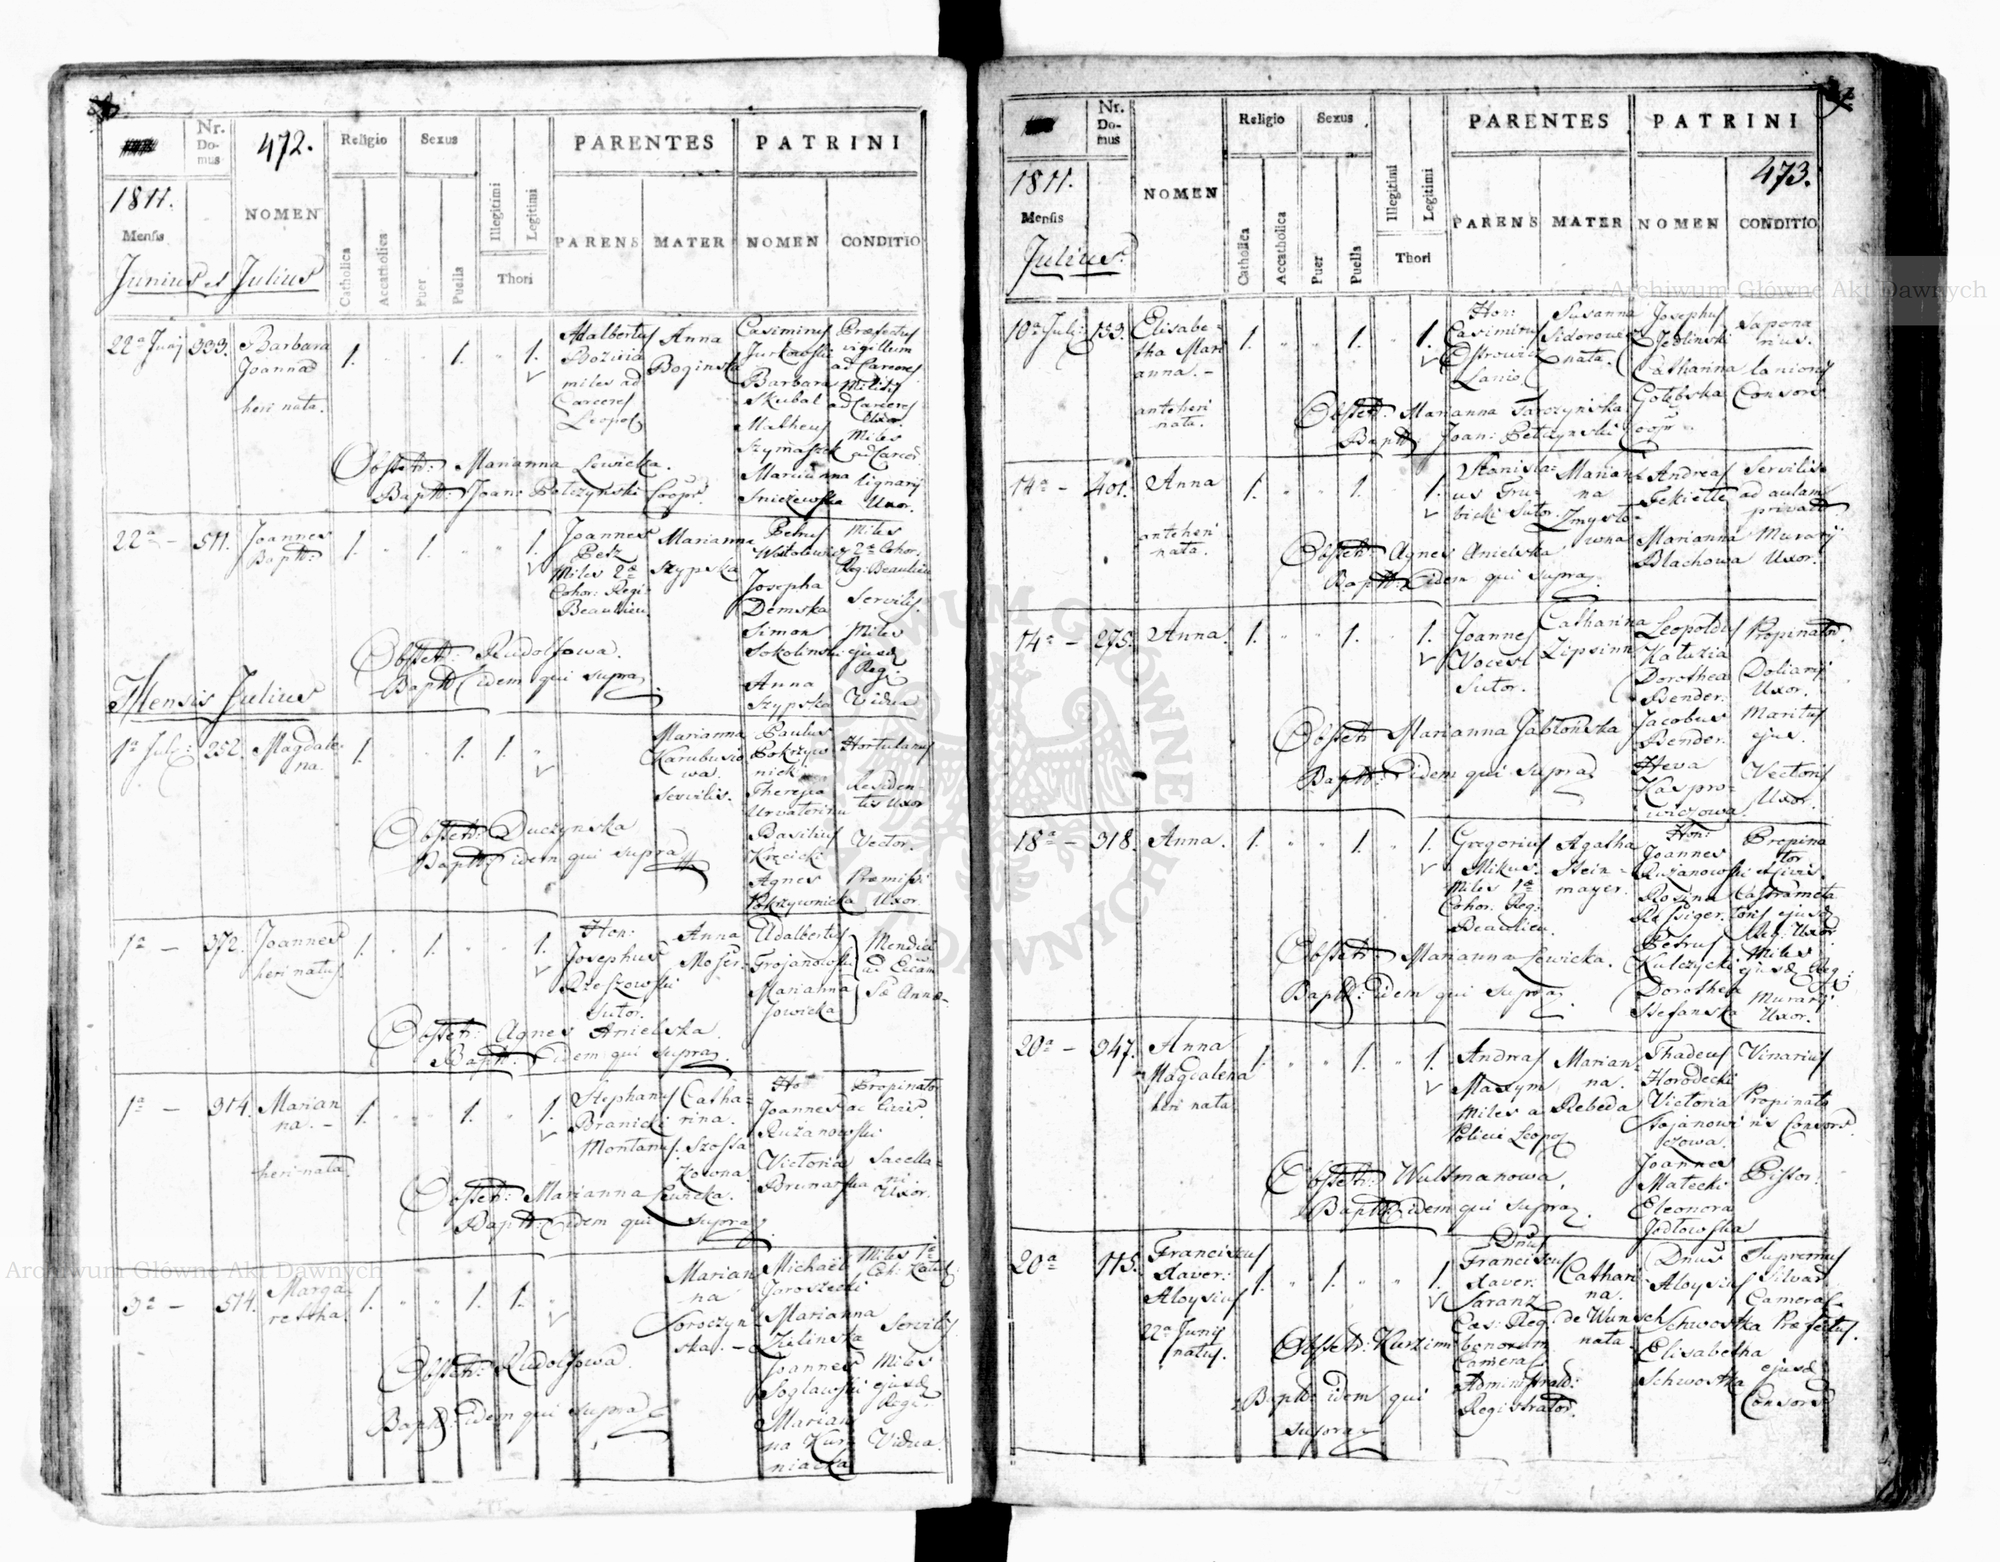 472.
Nr. Domus
Religio
Sexus
Illegitimi
Legitimi
PARENTES
PATRINI
1811.
Mensis
Junius et Julius
NOMEN
Catholica
Accatholica
Puer
Puella
Thori
PARENS
MATER
NOMEN
CONDITIO
22a Junij
333.
Barbara
Joanna
heri nata.
1.
1.
1.
Adalbertus
Bozivia
miles ad
Carceres
Leopol
Anna
Boginska
Casimirus
Jurkowski
Barbara
Skubal
Matheus
Szymaszek
Marianna
Sniezewska
Præfectus
vigillum
ad Carceres
Militis
ad Carceres
Uxor.
Miles
ad Carcer
lignarij
Uxor.
Obstetr: Marianna Lewicka.
Bapt: Joan: Petczynski Coopr.
22a —
511.
Joannes
Bapt:
1.
1.
1.
Joannes
Petz
Miles 2æ
Cohor: Regi:
Beaulieu.
Marianna
Szypska
Petrus
Josepha
Demska
Simon
Sokolinski
Anna
Szypska
Miles
2æ Cohor.
Reg: Beaulieu
Servilis.
Miles
ejusd
Regi
Vidua
Obstetr: Rudolfowa.
Bapt: idem qui supra
Mensis Julius
1a Juli:
252.
Magdale-
na.
1.
1.
1.
Marianna
Karubusio
wa.
servilis.
Paulus
Pokrzyw
nick
Theresia
Basilius
Krzcicki
Agnes
Pokrzywnicka
Hortulanus
Residen
tis Uxor
Vector.
Præmissi
Uxor.
Obstetr: Duczynska
Bapt: idem qui supra
1a —
372.
Joannes
heri natus
1.
1.
1.
Hon:
Josephus
Rzeszowski
Sutor.
Anna
Moser
Adalbertus
Trojanowski
Marianna
Jowicka
Mendici
ad Eccam
Sæ Annæ
Obstetr: Agnes Anielska
Bapt: idem qui supra
1a —
314.
Marian
na. —
heri nata
1.
1.
1.
Stephanus
Branicki
Montanus.
Catha-
rina.
Szossa
kowna.
Ho
Joannes
Ruzanowski
Victoria
Brunarska
Propinator
ac Civis.
Sacella-
ni
Uxor.
Obstetr: Marianna Lewicka.
Bapt: idem qui supra
3a —
514.
Marga-
retha.
1.
1.
1.
Marian
na
Soroczyn
ska. —
Michael
Jaroszecki
Marianna
Zielinska
Joannes
Soglawski
Marian
na Kur
niacka
Miles 1æ
Servilis
Miles
ejusd
Regi:
Vidua.
Obstetr: Rudolfowa.
Bapt: idem qui supra
Nr. Domus
Religio
Sexus
Illegitimi
Legitimi
PARENTES
PATRINI
1811.
473.
Mensis
Julius
NOMEN
Catholica
Accatholica
Puer
Puella
Thori
PARENS
MATER
NOMEN
CONDITIO
10a Juli:
133.
Elisabe-
tha Mari
anna. —
ante heri
nata.
1.
1.
1.
Hon:
Casimirus
Ostrowicz
Lanio
Susanna
Sidorowicz
nata.
Josephus
Jedlinski
Catharina
Gołębska
Sapona
rius.
lanionis
Consors.
Obstetr: Marianna Tarczynska
Bapt: Joan: Petczynski Coopr
14a —
401.
Anna
ante heri
nata.
1.
1.
1.
Stanisla-
us Gru-
bicki Sutor.
Marian-
na
Zmysło-
wna
Andreas
Fekiette
Marianna
Blachowa
Servilis
ad aulam
privatam
Murarij
Uxor.
Obstetr: Agnes Anielska
Bapt: idem qui supra
14a —
275.
Anna.
1.
1.
1.
Joannes
Wocesl
Sutor.
Catharina
Lipsinn
Leopoldus
Katuzia
Dorothea
Bender.
Jacobus
Bender.
Heva
Kaspro-
wiczowa
Propinator.
Doliarij
Uxor.
Maritus
ejus.
Vectoris
Uxor.
Obstetr: Marianna Jabłonska
Bapt: idem qui supra
18a —
318.
Anna.
1.
1.
1.
Gregorius
Mikus.
Miles 1æ
Cohor. Reg:
Beaulieu.
Agatha
Stein-
mayer.
Hon:
Joannes
Ruzanowski
Rosina
Petrus
Kulczycki
Dorothea
Stefanska
Propina
tor
et Civis.
Castrameta
toris ejusd
Reg: Uxor
Miles
ejusd Reg:
Murarij
Uxor.
Obstetr: Marianna Lewicka.
Bapt: idem qui supra
20a —
347.
Anna
Magdalena
heri nata
1.
1.
1.
Andreas
Maxym
Miles a
Policii Leopol
Marian-
na.
Rebeda
Thadeus
Horodecki
Victoria
Stojanowi
czowa.
Joannes
Małecki
Eleonora
Jodłowska
Vinarius
Propinato
ris Consors.
Pistor.
Obstetr: Wulsmanowa.
Bapt: idem qui supra
20a
115.
Franciscus
Xaver:
Aloysius
22a Junij
natus.
1.
1.
1.
Dnus
Franciscus
Xaver:
Saranz
Cæs: Reg:
bonorum
Cameral
Administrat:
Registrator.
Cathari
na.
de Wunsch
nata.
Dnus
Aloysius
Schwostka
Elisabetha
Schwostka
Supremus
Silvar
Cameral
Præfectus.
ejusd
Consors
Obstetr: Kurzim
Bapt: idem qui
supra
Archiwum Główne Akt Dawnych
Archiwum Główne Akt Dawnych
ARCHIWUM GŁÓWNE AKT DAWNYCH